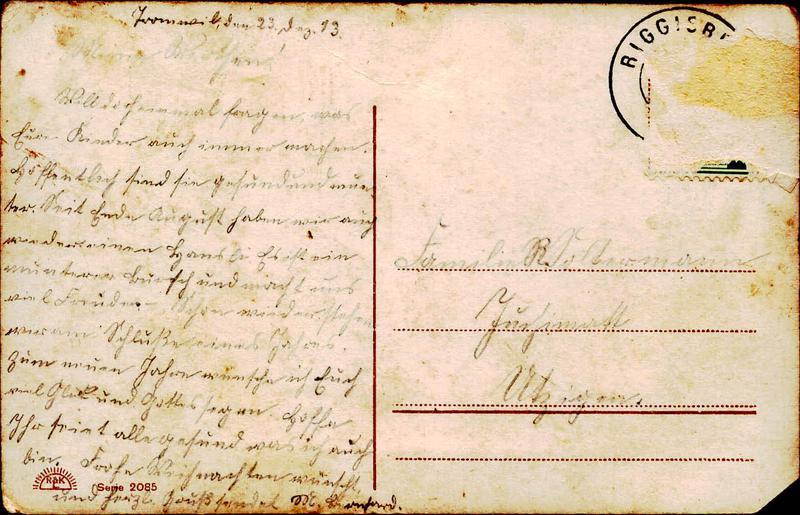 Tromwil, den 23. Dez. 13.
Will doch einmal fragen, was
Eure Kinder auch immer machen.
Hoffentlich sind sie gesund und mun-
ter. Seit Ende August haben wir auch
wieder einen Hansli Es ist ein
munterer Bursch und macht uns
viel Freude. – Schon wieder stehen
wir am Schluße eines Jahres.
Zum neuen Jahre wünsche ich Euch
viel Glück und Gottes segen. Hoffe
Ihr seiet alle gesund was ich auch
bin. Frohe Weihnachten wünscht
und herzl. Gruß sendet M.
RIGGISB
Familie
Utzigen.
R&K
Serie 2085